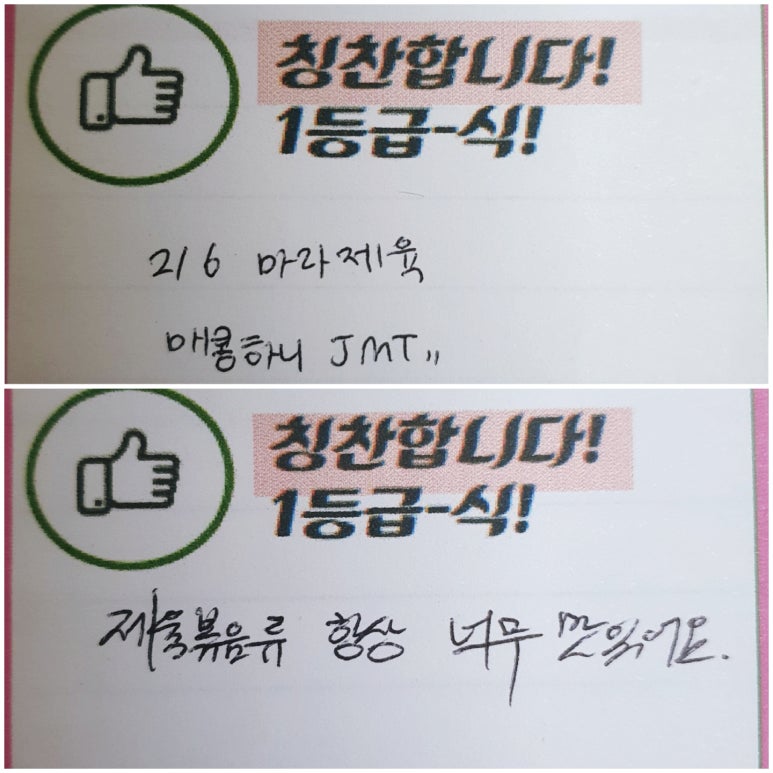 칭찬합니다!
1등급-식!
2/6 마라제육
매콤하니 JMT,,
칭찬합니다!
1등급-식!
제육볶음류 항상 너무 맛있어요.